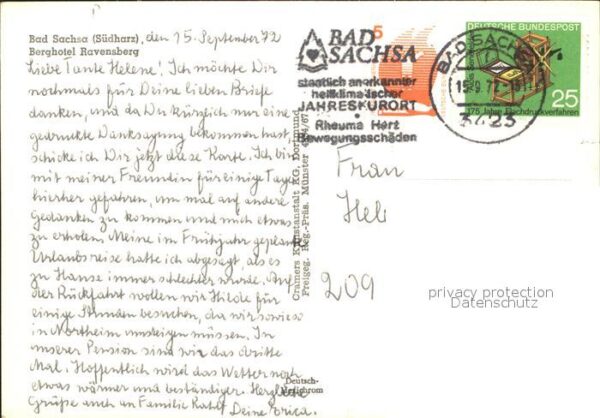 Bad Sachsa (Südharz), den 15. September 72
Berghotel Ravensberg
Liebe Tante Helene! Ich möchte Dir
nochmals für Deine lieben Briefe
danken, und da Du kürzlich nur eine
gedruckte Danksagung bekommen hast,
schicke ich Dir jetzt diese Karte. Ich bin
mit meiner Freundin für einige Tage
hierher gefahren, um mal auf andere
Gedanken zu kommen und mich etwas
zu erholen. Meine im Frühjahr geplante
Urlaubsreise hatte ich abgesagt, als es
zu Hause immer schlechter wurde. Auf
der Rückfahrt wollen wir Hilde für
einige Stunden besuchen, da wir sowieso
in Northeim umsteigen müssen. In
unserer Pension sind wir das dritte
Mal. Hoffentlich wird das Wetter noch
etwas wärmer und beständiger. Herzliche
Grüße auch an Familie
Deine Erica.
Cramers Kunstanstalt KG, Dortmund
Freigeg. Reg.-Präs. Münster
Deutsch-
BAD
SACHSA
staatlich anerkannter
heilklimatischer
JAHRESKURORT
Rheuma Herz
Bewegungsschäden
5
BAD SACHSA
15.9.72
3423
DEUTSCHE BUNDESPOST
25
175 Jahre Flachdruckverfahren
Frau
Hel
209
privacy protection
Datenschutz